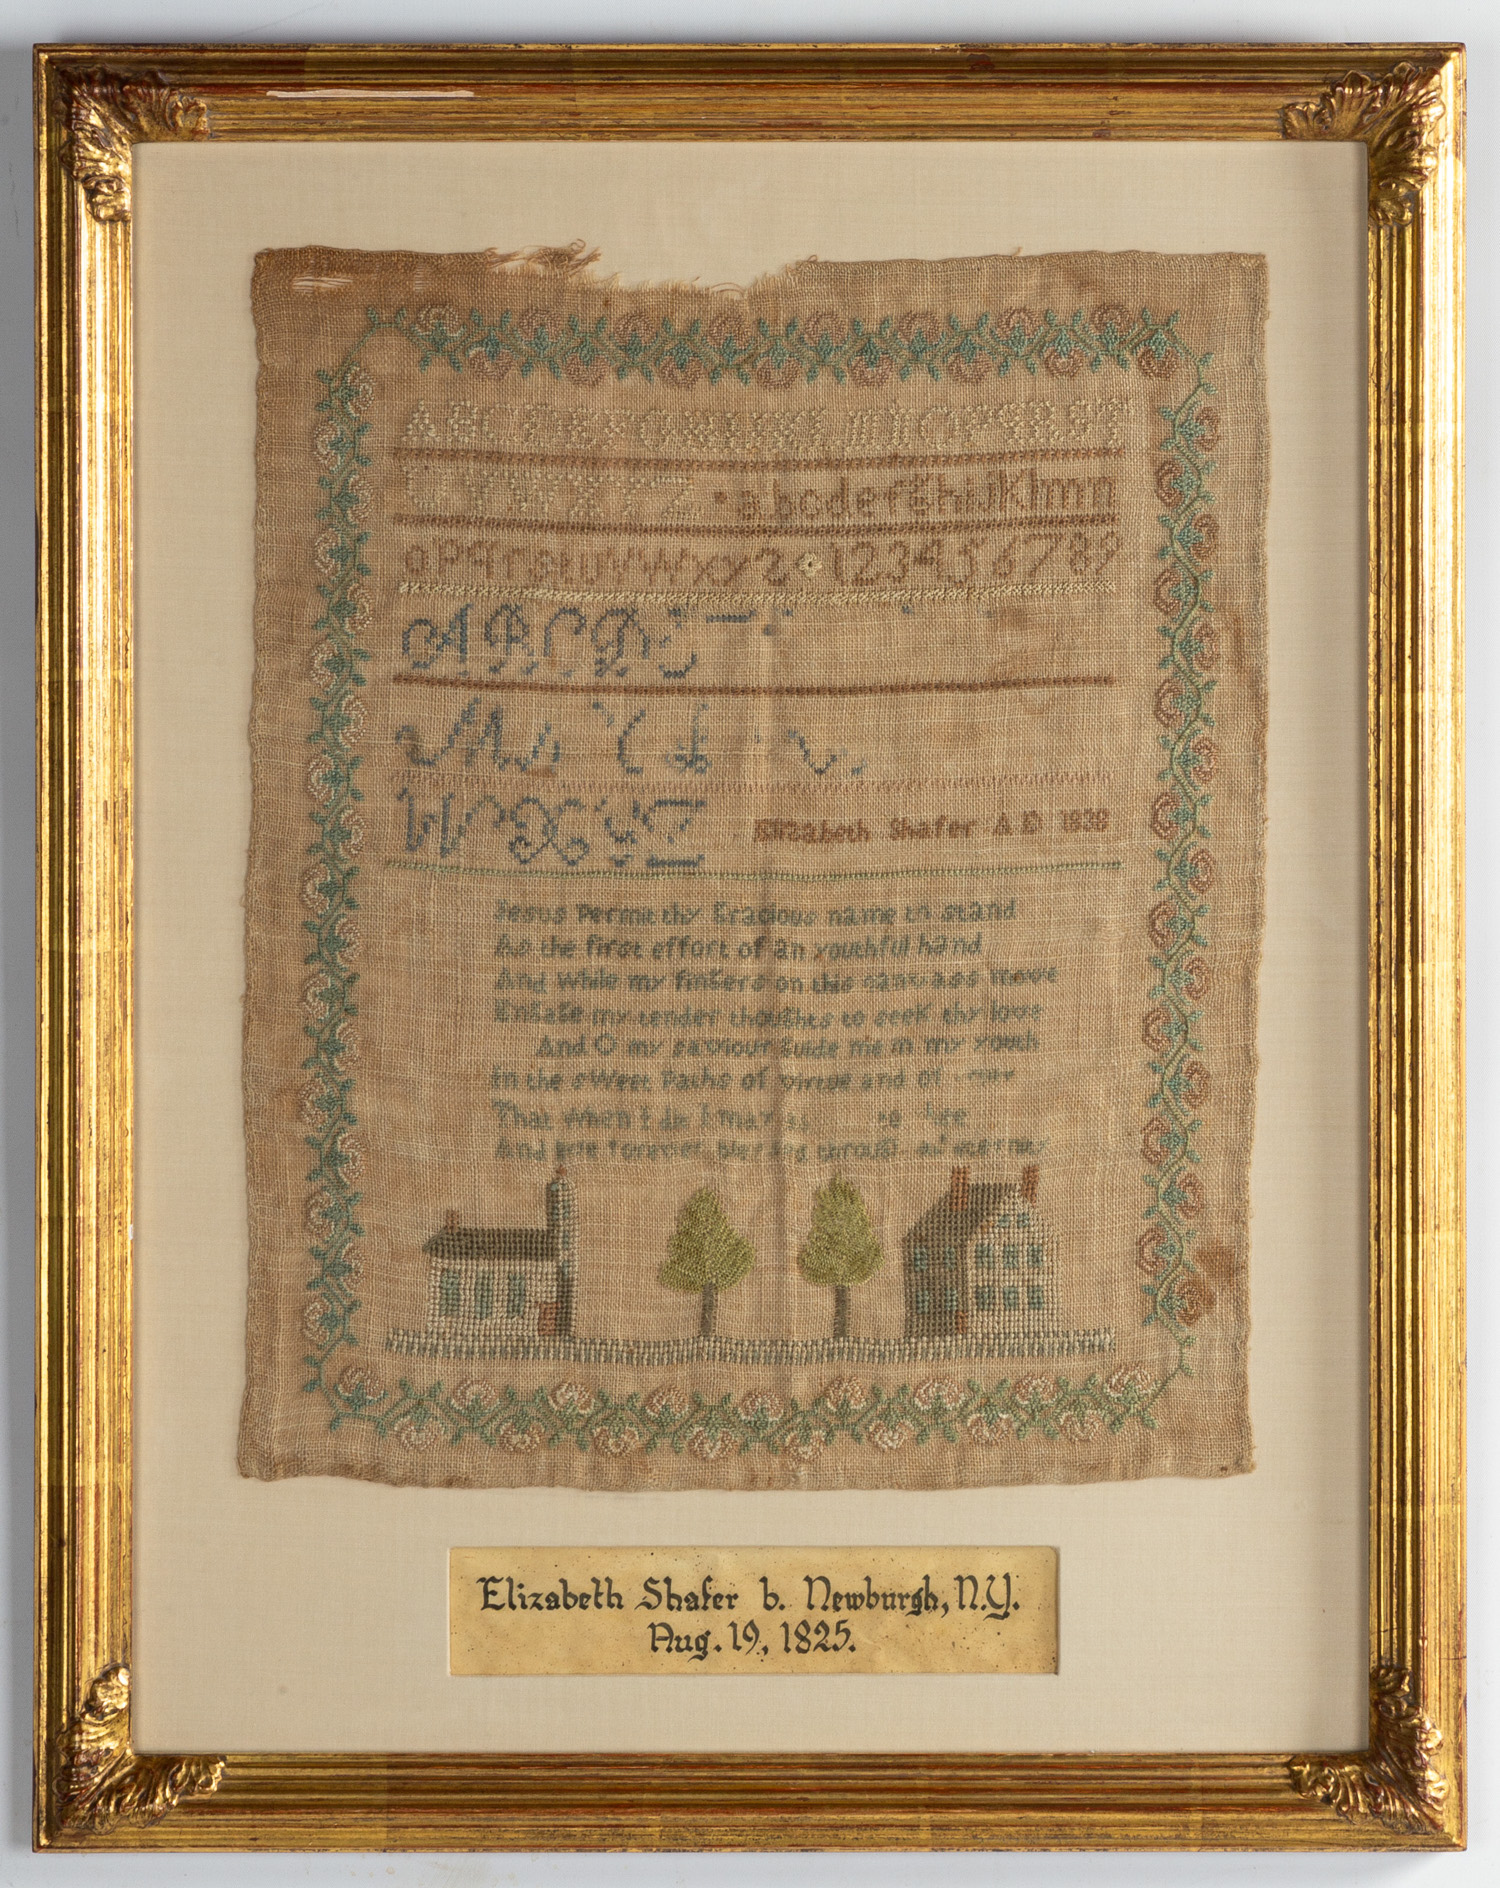 A B C D E F G H I J K L M N O P Q R S T
U V W X Y Z a b c d e f g h i j k l m n
o p q r s t u v w x y z 1 2 3 4 5 6 7 8 9
A B C D
M
W X Y Z Elizabeth Shafer A D 1839
Jesus permit thy Gracious name to stand
As the first effort of an youthful hand
And While my fingers on this canvass move
Engage my tender thoughts to seek thy love
And O my saviour Guide me in my youth
In the sweet Paths of virtue and of
That when I to
And forever through
Elizabeth Shafer b. Newburgh, N.Y.
Aug. 19, 1825.